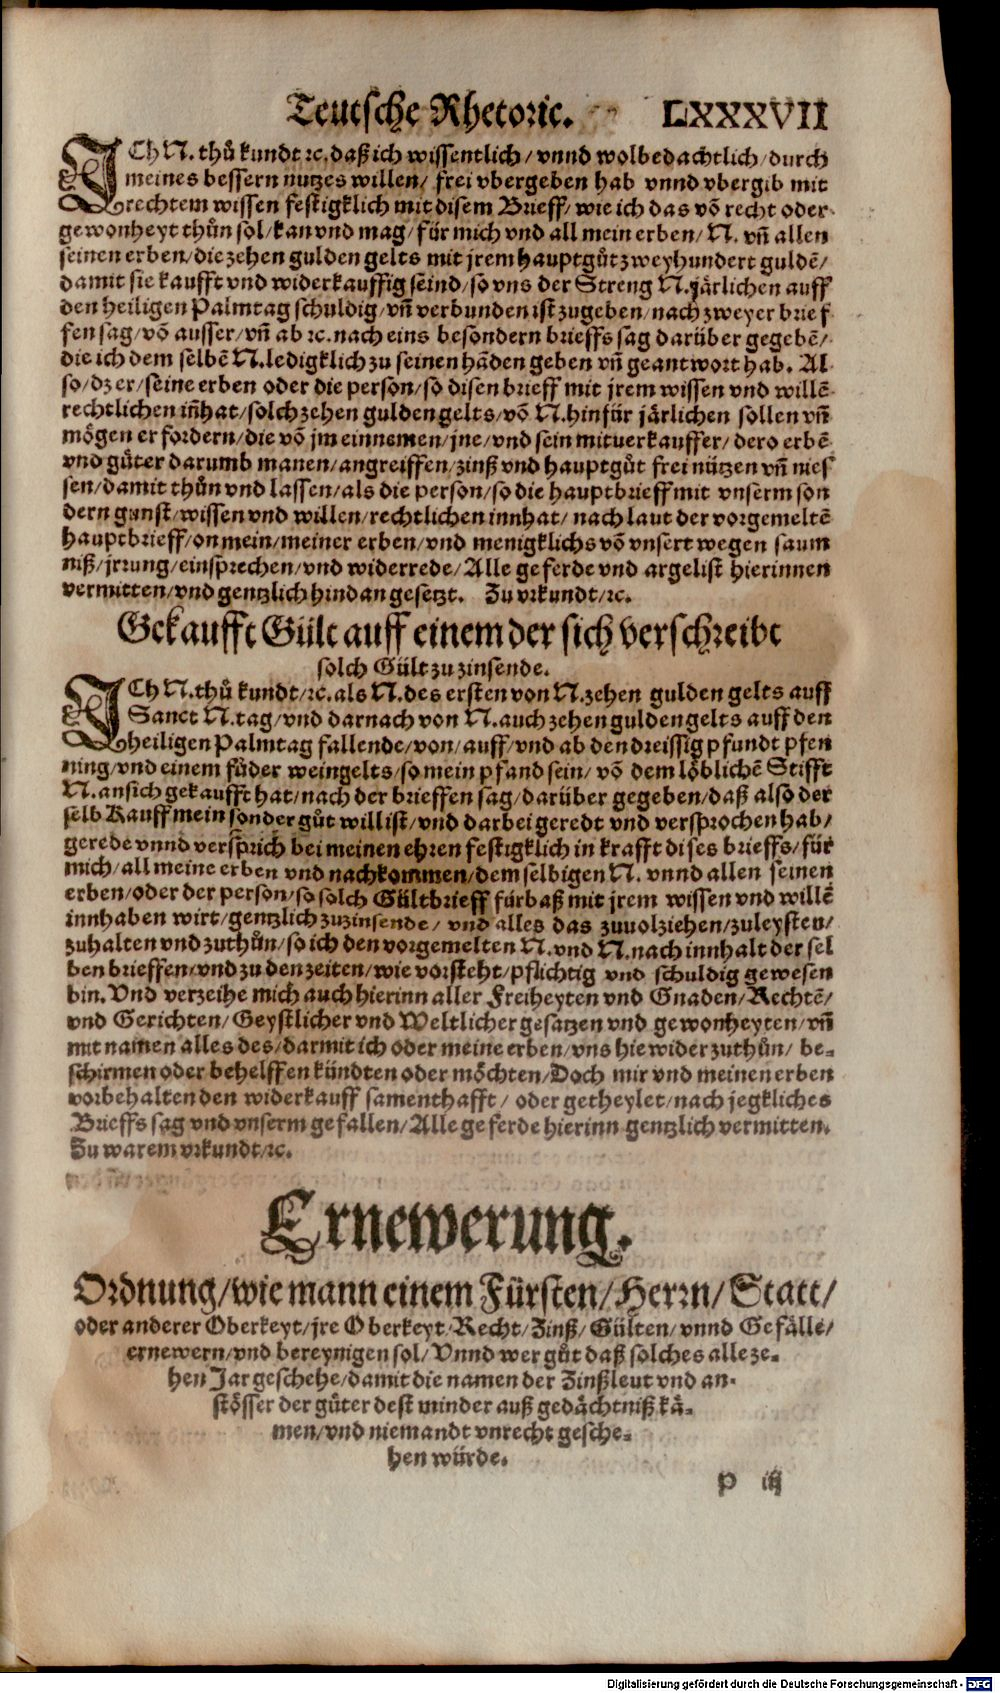 Teutsche Rhetoric. LXXXVII
ICh N. thů kundt ꝛc. daß ich wissentlich / vnnd wolbedachtlich / durch
meines bessern nutzes willen / frei vbergeben hab vnnd vbergib mit
rechtem wissen festigklich mit disem Brieff / wie ich das võ recht oder
gewonheyt thůn sol / kan vnd mag / für mich vnd all mein erben / N. vñ allen
seinen erben / die zehen gulden gelts mit jrem hauptgůt zweyhundert guldẽ /
damit sie kaufft vnd widerkauffig seind / so vns der Streng N. järlichen auff
den heiligen Palmtag schuldig / vñ verbunden ist zugeben / nach zweyer brief
fen sag / võ ausser / vñ ab ꝛc. nach eins besondern brieffs sag darüber gegebẽ /
die ich dem selbẽ N. ledigklich zu seinen hãden geben vñ geantwort hab. Al
so / dz er / seine erben oder die person / so disen brieff mit jrem wissen vnd willẽ
rechtlichen iñhat / solch zehen gulden gelts / võ N. hinfür järlichen sollen vñ
mögen erfordern / die võ jm einnemen / jne / vnd sein mituerkauffer / dero erbẽ
vnd güter darumb manen / angreiffen / zinß vnd hauptgůt frei nützen vñ nies
sen / damit thůn vnd lassen / als die person / so die hauptbrieff mit vnserm son
dern gunst / wissen vnd willen / rechtlichen innhat / nach laut der vorgemeltẽ
hauptbrieff / on mein / meiner erben / vnd menigklichs võ vnsert wegen saum
niß / jrrung / einsprechen / vnd widerrede / Alle geferde vnd argelist hierinnen
vermitten / vnd gentzlich hindan gesetzt. Zu vrkundt / ꝛc.
Gekaufft Gült auff einem der sich verschreibt
solch Gült zu zinsende.
ICh N. thů kundt / ꝛc. als N. des ersten von N. zehen gulden gelts auff
Sanct N. tag / vnd darnach von N. auch zehen gulden gelts auff den
heiligen Palmtag fallende / von / auff / vnd ab den dreissig pfundt pfen
ning / vnd einem fůder weingelts / so mein pfand sein / võ dem löblichẽ Stifft
N. an sich gekaufft hat / nach der brieffen sag / darüber gegeben / daß also der
selb Kauff mein sonder gůt will ist / vnd darbei geredt vnd versprochen hab /
gerede vnnd versprich bei meinen ehren festigklich in krafft dises brieffs / für
mich / all meine erben vnd nachkommen / dem selbigen N. vnnd allen seinen
erben / oder der person / so solch Gültbrieff fürbaß mit jrem wissen vnd willẽ
innhaben wirt / gentzlich zuzinsende / vnd alles das zuuolziehen / zuleysten /
zuhalten vnd zuthůn / so ich den vorgemelten N. vnd N. nach innhalt der sel
ben brieffen / vnd zu den zeiten / wie vorsteht / pflichtig vnd schuldig gewesen
bin. Vnd verzeihe mich auch hierinn aller Freiheyten vnd Gnaden / Rechtẽ /
vnd Gerichten / Geystlicher vnd Weltlicher gesatzen vnd gewonheyten / vñ
mit namen alles des / darmit ich oder meine erben / vns hie wider zuthůn / be-
schirmen oder behelffen kündten oder möchten / Doch mir vnd meinen erben
vorbehalten den widerkauff samenthafft / oder getheylet / nach jegkliches
Brieffs sag vnd vnserm gefallen / Alle geferde hierinn gentzlich vermitten.
Zu warem vrkundt / ꝛc.
Ernewerung.
Ordnung / wie mann einem Fürsten / Herrn / Statt /
oder anderer Oberkeyt / jre Oberkeyt / Recht / Zinß / Gülten / vnnd Gefälle /
ernewern / vnd bereynigen sol / Vnnd wer gůt daß solches alle ze-
hen Jar geschehe / damit die namen der Zinßleut vnd an-
stösser der güter dest minder auß gedächtniß kä-
men / vnd niemandt vnrecht gesche-
hen würde.
P iij
Digitalisierung gefördert durch die Deutsche Forschungsgemeinschaft - DFG